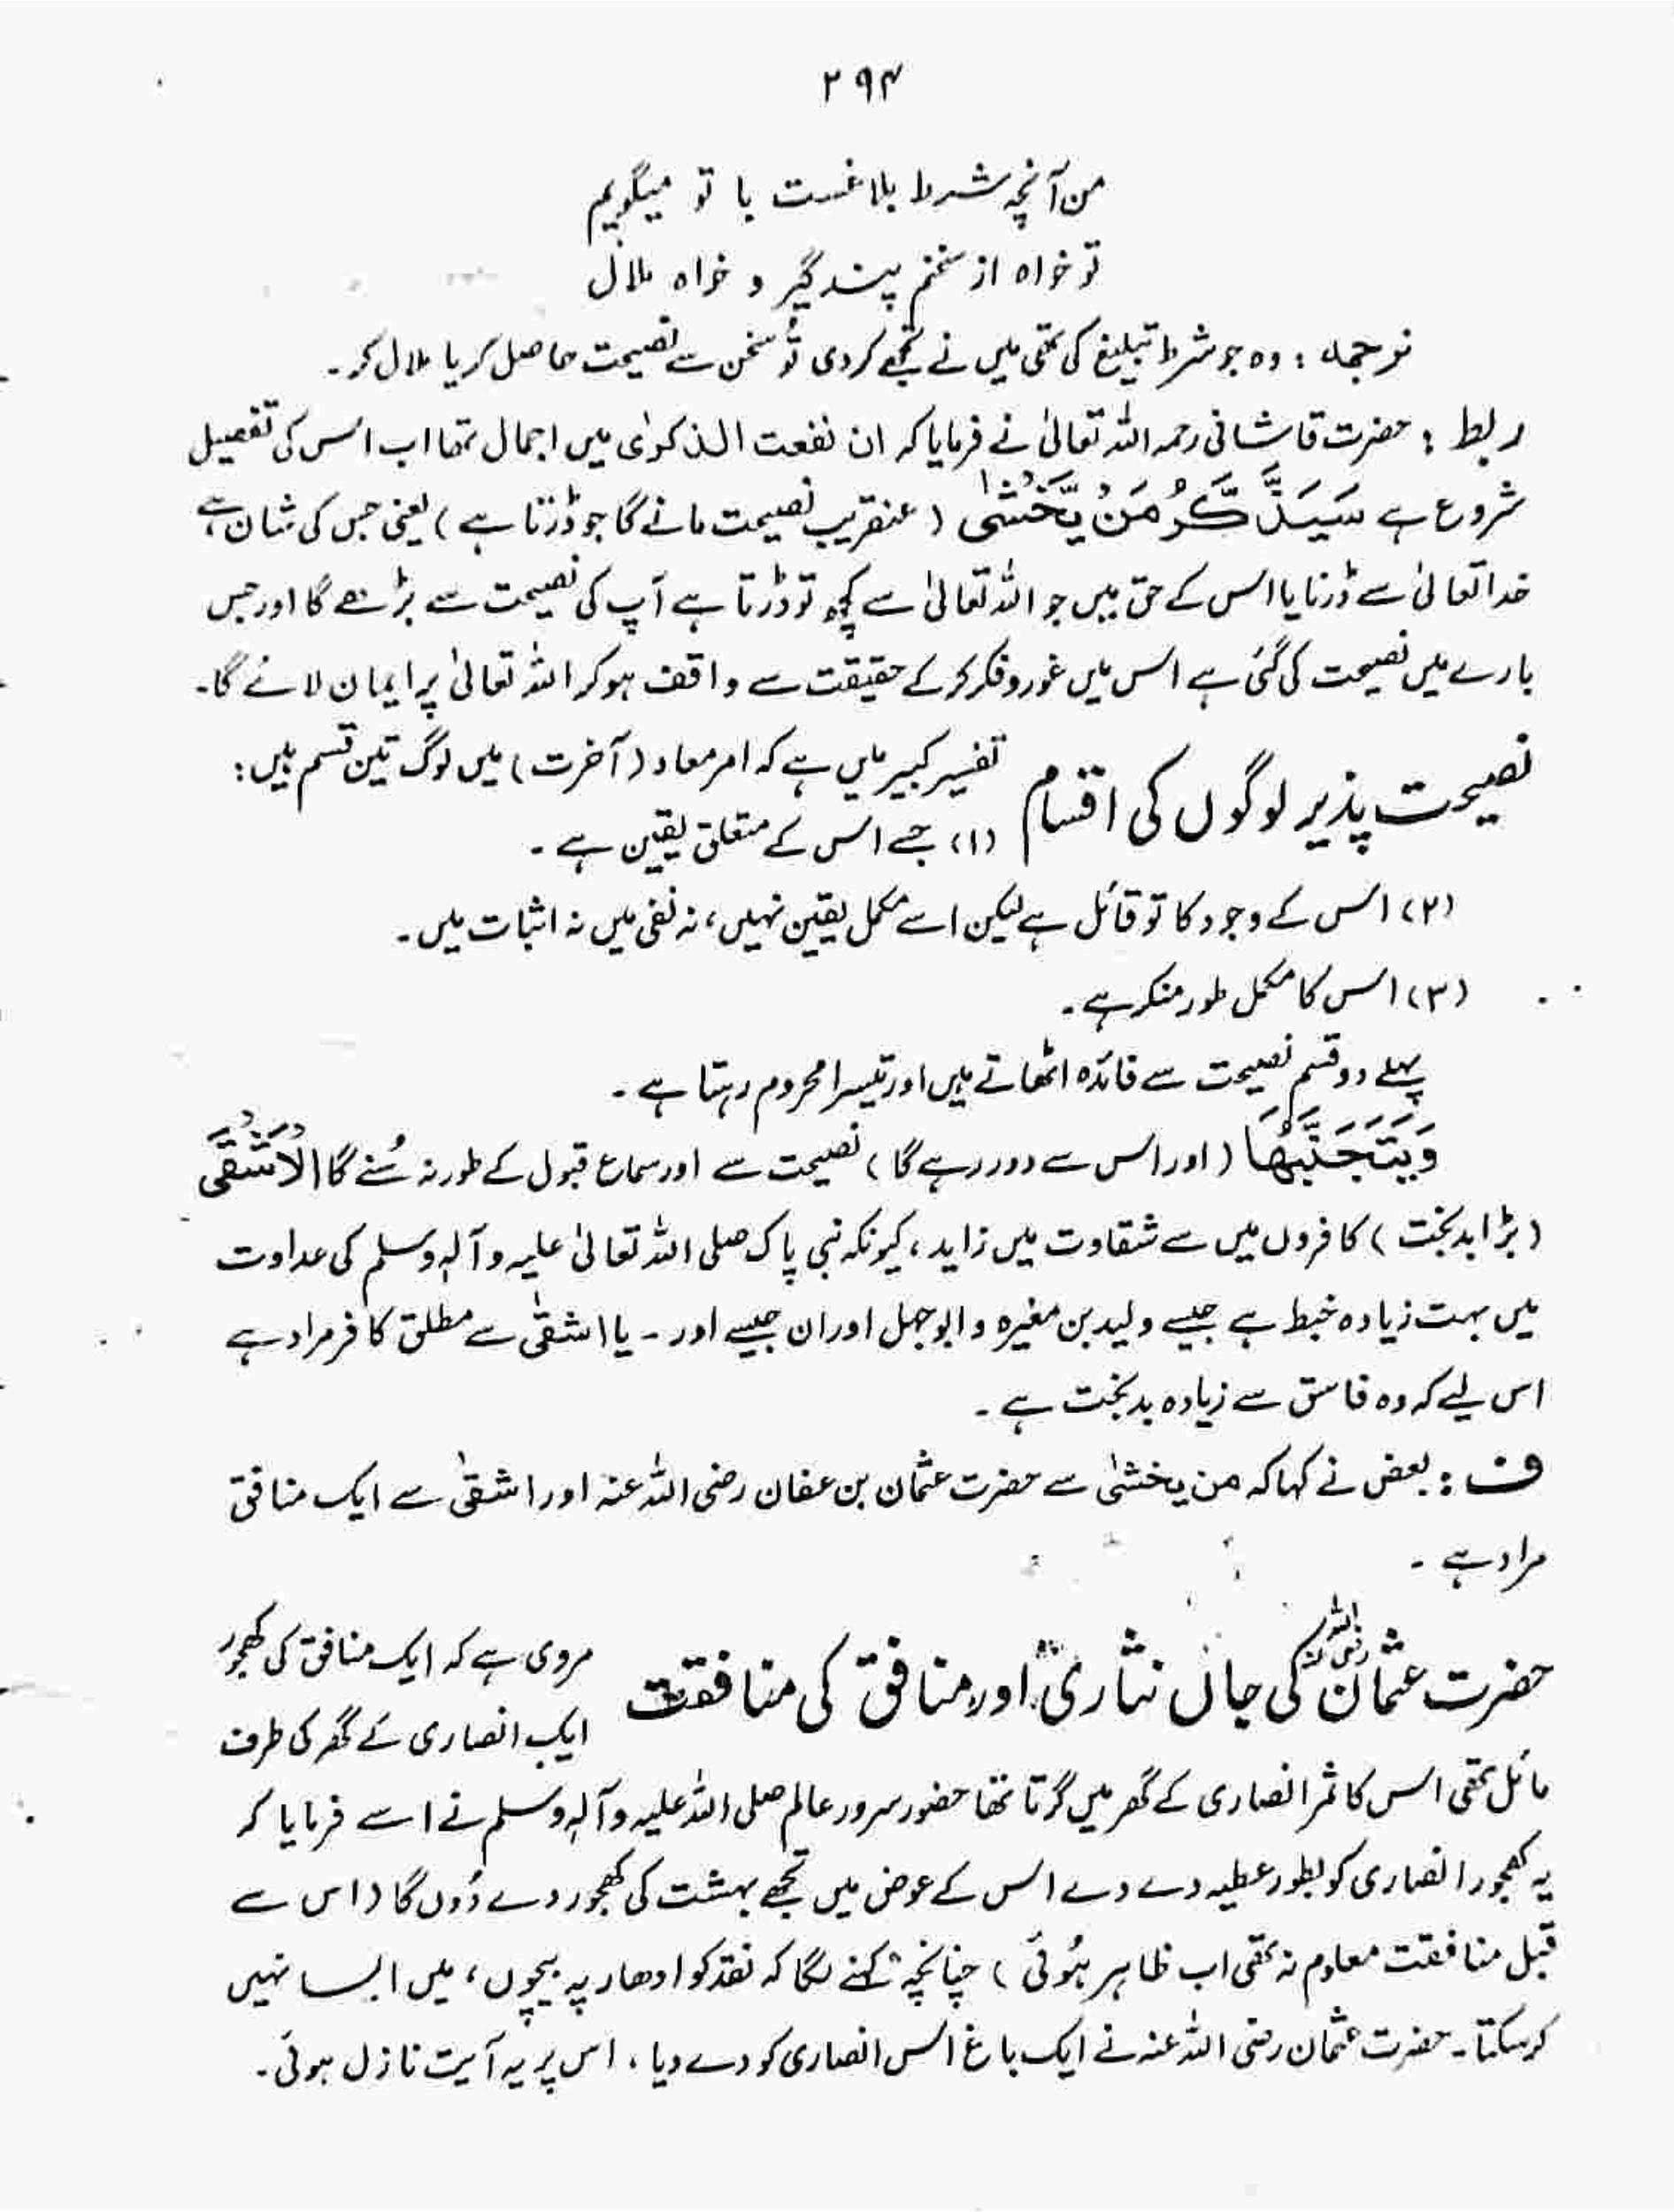 ۲۹۴
من آنچہ شرط بلاغست با تو میگویم
تو خواہ از سخنم پند گیر و خواہ ملال
ترجمہ : وہ جو شرط تبلیغ کی تھی میں نے تجھے کر دی تُو سخن سے نصیحت حاصل کر یا ملال کر ۔
ربط : حضرت قاشانی رحمہ اللہ تعالیٰ نے فرمایا کہ ان نفعت الذکرٰی میں اجمال تھا اب اس کی تفصیل
شروع ہے سَيَذَّكَّرُ مَنْ يَّخْشٰى (عنقریب نصیحت مانے گا جو ڈرتا ہے) یعنی جس کی شان ہے
خدا تعالیٰ سے ڈرنا یا اس کے حق میں جو اللہ تعالیٰ سے کچھ تو ڈرتا ہے آپ کی نصیحت سے بڑھے گا اور جس
بارے میں نصیحت کی گئی ہے اس میں غور و فکر کر کے حقیقت سے واقف ہو کر اللہ تعالیٰ پر ایمان لائے گا۔
نصیحت پذیر لوگوں کی اقسام تفسیر کبیر میں ہے کہ امر معاد (آخرت) میں لوگ تین قسم ہیں :
(۱) جسے اس کے متعلق یقین ہے ۔
(۲) اس کے وجود کا تو قائل ہے لیکن اسے مکمل یقین نہیں ، نہ نفی میں نہ اثبات میں ۔
(۳) اس کا مکمل طور منکر ہے ۔
پہلے دو قسم نصیحت سے فائدہ اٹھاتے ہیں اور تیسرا محروم رہتا ہے ۔
وَيَتَجَنَّبُهَا (اور اس سے دور رہے گا) نصیحت سے اور سماع قبول کے طور نہ سُنے گا الْاَشْقَى
(بڑا بدبخت) کافروں میں سے شقاوت میں زاید ، کیونکہ نبی پاک صلی اللہ تعالیٰ علیہ وآلہ وسلم کی عداوت
میں بہت زیادہ خبط ہے جیسے ولید بن مغیرہ و ابوجہل اور ان جیسے اور ۔ یا اشقٰی سے مطلق کافر مراد ہے
اس لیے کہ وہ فاسق سے زیادہ بدبخت ہے ۔
ف : بعض نے کہا کہ من یخشٰی سے حضرت عثمان بن عفان رضی اللہ عنہ اور اشقٰی سے ایک منافق
مراد ہے ۔
حضرت عثمان رضی اللہ عنہ کی جاں نثاری اور منافق کی منافقت مروی ہے کہ ایک منافق کی کھجور
ایک انصاری کے گھر کی طرف
مائل تھی اس کا ثمر انصاری کے گھر میں گرتا تھا حضور سرور عالم صلی اللہ علیہ وآلہ وسلم نے اسے فرمایا کہ
یہ کھجور انصاری کو بطور عطیہ دے دے اس کے عوض میں تجھے بہشت کی کھجور دے دُوں گا (اس سے
قبل منافقت معلوم نہ تھی اب ظاہر ہُوئی) چنانچہ کہنے لگا کہ نقد کو ادھار پہ بیچوں ، میں ایسا نہیں
کر سکتا ۔ حضرت عثمان رضی اللہ عنہ نے ایک باغ اس انصاری کو دے دیا ، اس پر یہ آیت نازل ہوئی ۔